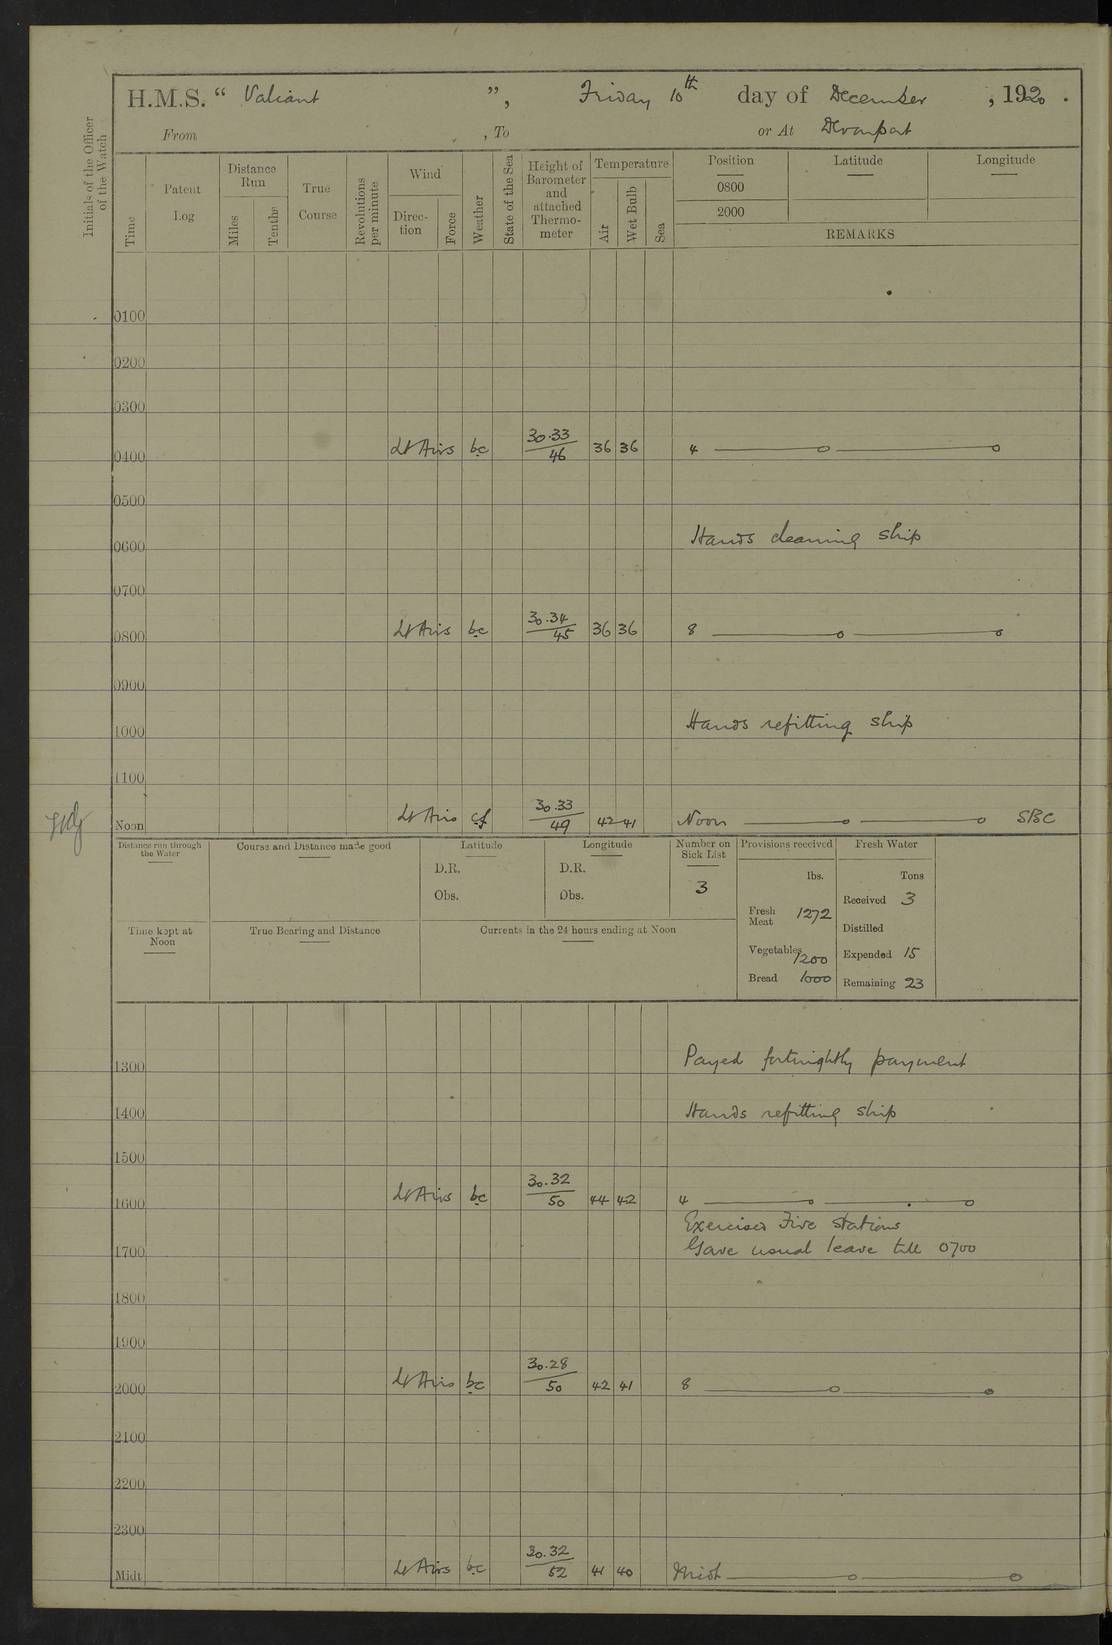 H.M.S. “ Valiant ”, Friday 10th day of December , 1920 .
From , To or At Devonport
Initials of the Officer of the Watch
Time
Patent Log
Distance Run
Miles
Tenths
True Course
Revolutions per minute
Wind
Direction
Force
Weather
State of the Sea
Height of Barometer and attached Thermometer
Temperature
Air
Wet Bulb
Sea
Position Latitude Longitude
0800
2000
REMARKS
0100
0200
0300
0400 Lt Airs bc 30.33/46 36 36 4
0500
0600 Hands cleaning ship
0700
0800 Lt Airs bc 30.34/45 36 36 8
0900
1000 Hands refitting ship
1100
Noon Lt Airs cf 30.33/49 42 41 Noon SBC
Distance run through the Water
Course and Distance made good
Latitude
D.R.
Obs.
Longitude
D.R.
Obs.
Number on Sick List
3
Provisions received
lbs.
Fresh Meat 1272
Vegetables 1200
Bread 1000
Fresh Water
Tons
Received 3
Distilled
Expended 15
Remaining 23
Time kept at Noon
True Bearing and Distance
Currents in the 24 hours ending at Noon
1300 Payed fortnightly payment
1400 Hands refitting ship
1500
1600 Lt Airs bc 30.32/50 44 42 4
Exercised Fire Stations
1700 Gave usual leave till 0700
1800
1900
2000 Lt Airs bc 30.28/50 42 41 8
2100
2200
2300
Midt Lt Airs bc 30.32/52 41 40 Midt